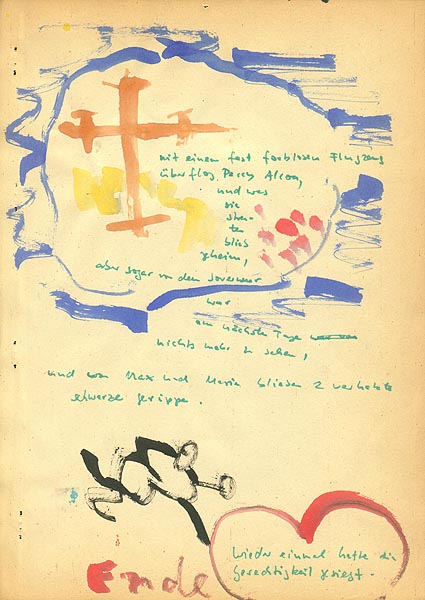 mit einem fast farblosen Flugzeug
überflog Percy
und was
sie
streu-
ten
blieb
geheim,
aber sogar von dem
war
am nächste Tage
nichts mehr zu sehen,
und von Max und Maria blieben 2
schwarze Gerippe.
Wieder einmal hatte die
Gerechtigkeit gesiegt.
Ende